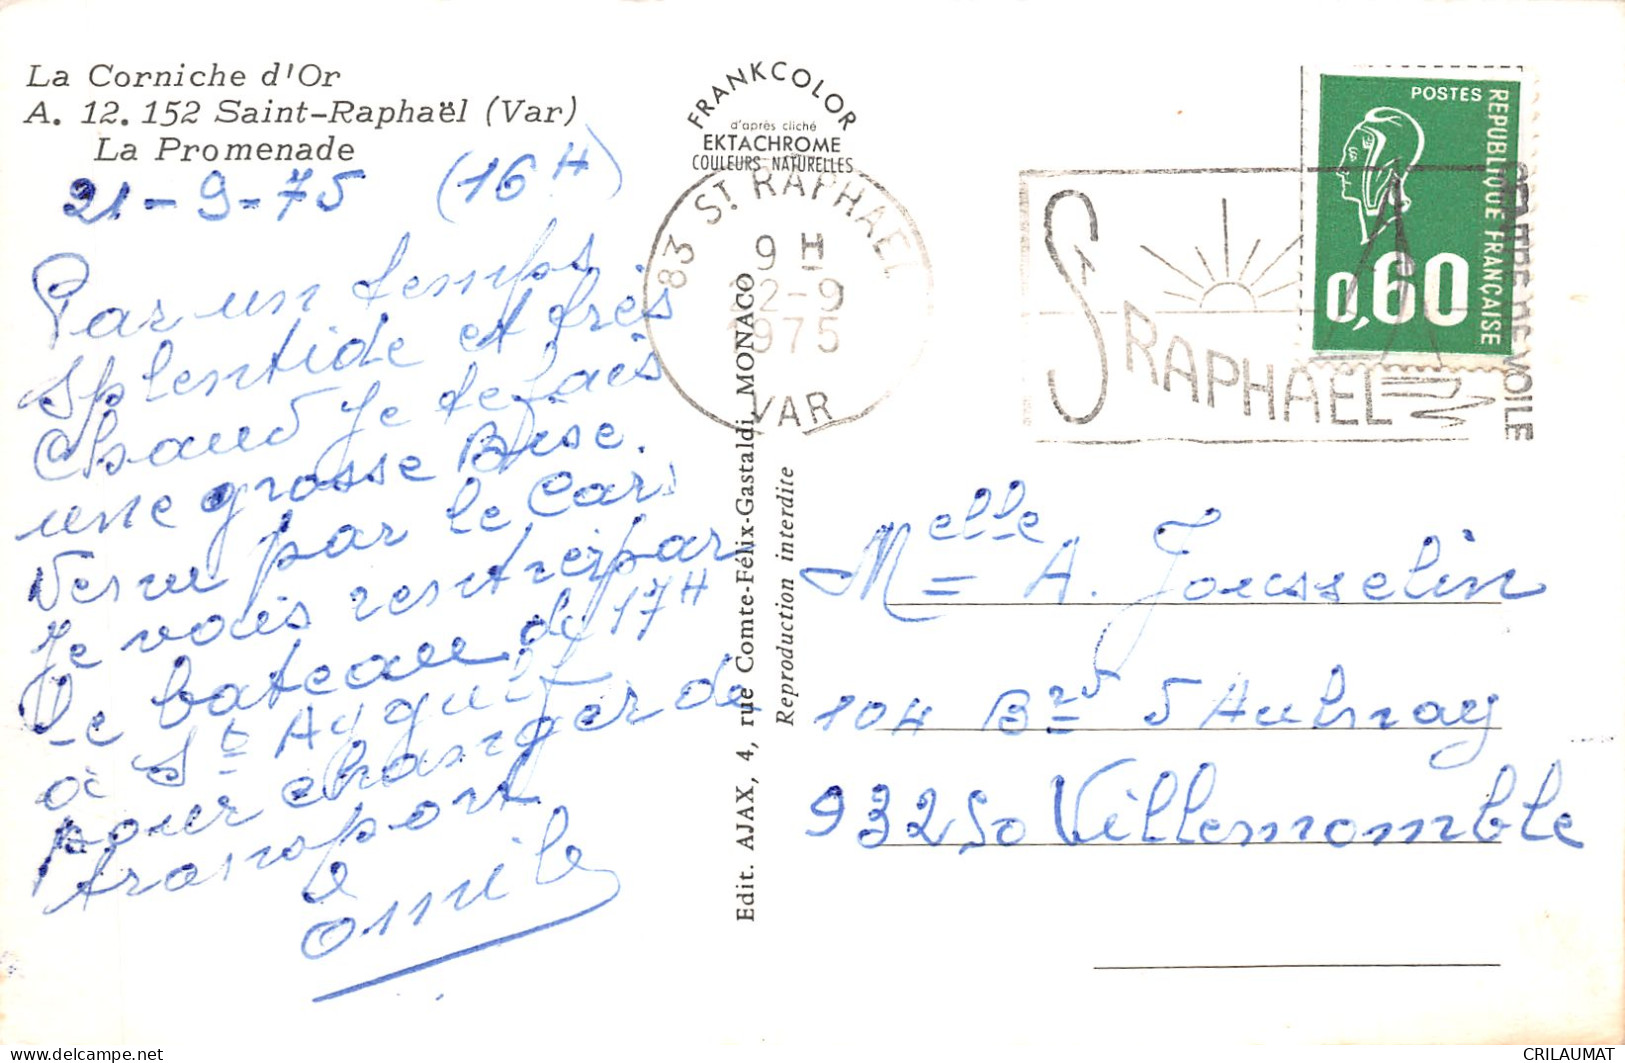 La Corniche d'Or
A. 12. 152 Saint-Raphaël (Var)
La Promenade
21-9-75 (16H)
Par un temps
splentide et très
chaud Je te fais
une grosse Bise.
Venu par le Car,
Je vais rentrer par
Le bateau de 17H
à St Aygulf
pour changer de
transport
Emile
FRANKCOLOR
d'après cliché
EKTACHROME
COULEURS NATURELLES
83 ST RAPHAEL
9 H
22-9
1975
VAR
Edit. AJAX, 4, rue Comte-Félix-Gastaldi, MONACO
Reproduction interdite
ST RAPHAEL
CENTRE DE VOILE
POSTES
REPUBLIQUE FRANÇAISE
0,60
Melle A. Jousselin
104 Brd d'Aulnay
93250 Villemomble
www.delcampe.net
CRILAUMAT